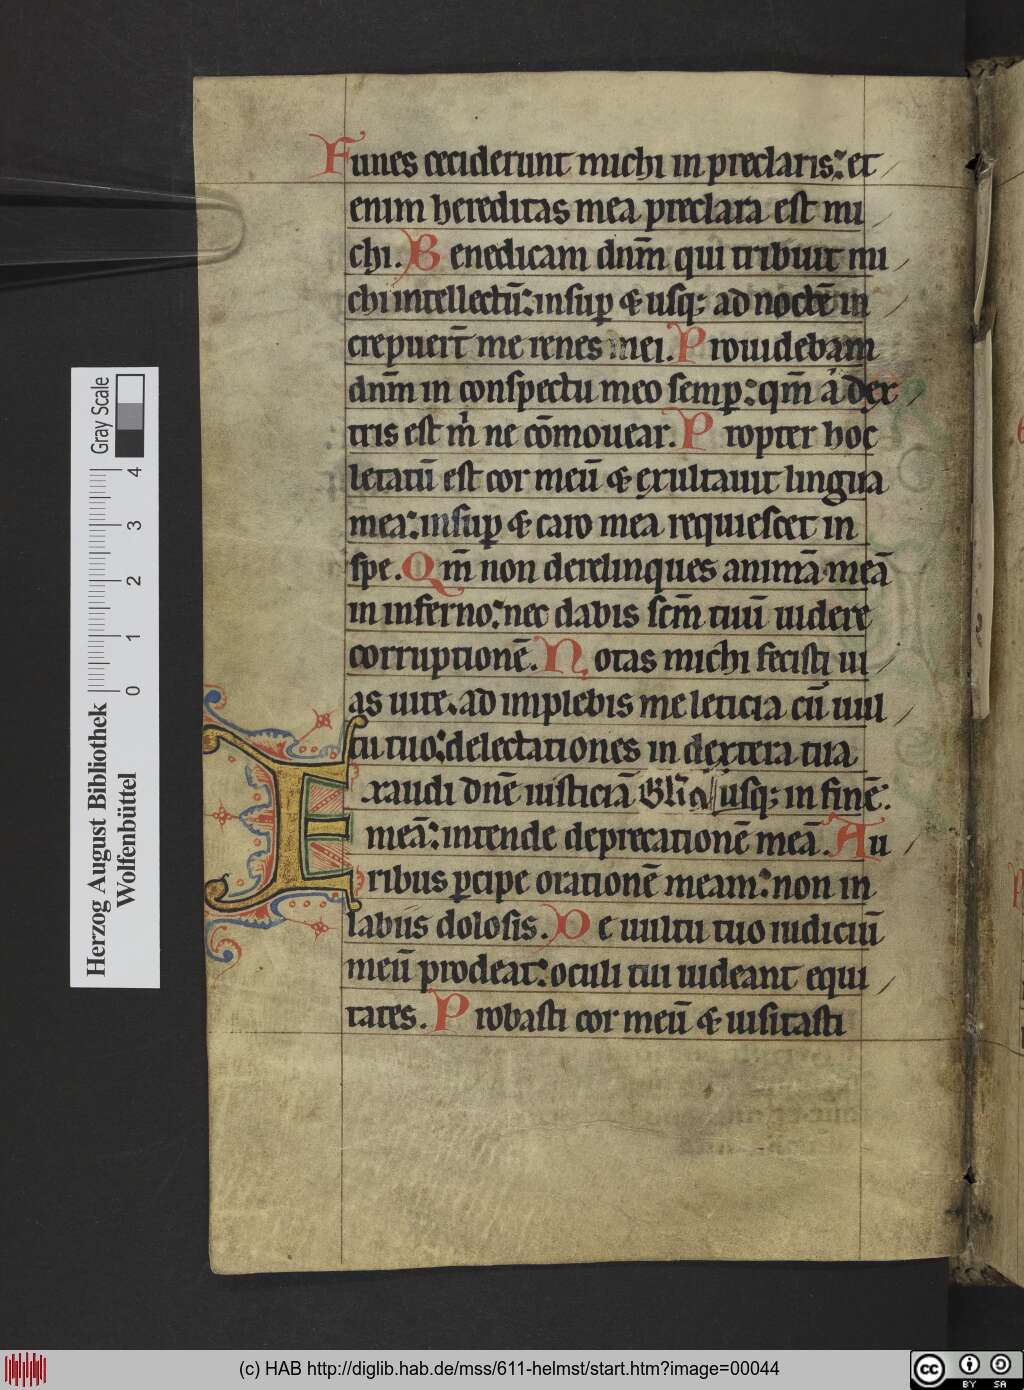 Funes ceciderunt michi in preclaris: et
enim hereditas mea preclara est mi
chi. Benedicam dnm̄ qui tribuit mi
chi intellectū: insup & usq; ad noctē in
crepuer̄t me renes mei. Prouidebam
dnm̄ in conspectu meo semp: qm̄ a dex
tris est m ne cōmouear. Propter hoc
letatū est cor meū & exultauit lingua
mea: insup & caro mea requiescet in
spe. Qm̄ non derelinques animā meā
in inferno: nec dabis scm̄ tuū uidere
corruptionē. Notas michi fecisti ui
as uite. ad implebis me leticia cū uul
tu tuo: delectationes in dextera tua
Exaudi dn̄e iusticiā usq; in finē.
meā: intende deprecationē meā. Au
ribus pcipe orationē meam: non in
labiis dolosis. De uultu tuo iudiciū
meū prodeat: oculi tui uideant equi
tates. Probasti cor meū & uisitasti
Gray Scale
0 1 2 3 4
Herzog August Bibliothek
Wolfenbüttel
(c) HAB http://diglib.hab.de/mss/611-helmst/start.htm?image=00044
cc BY SA